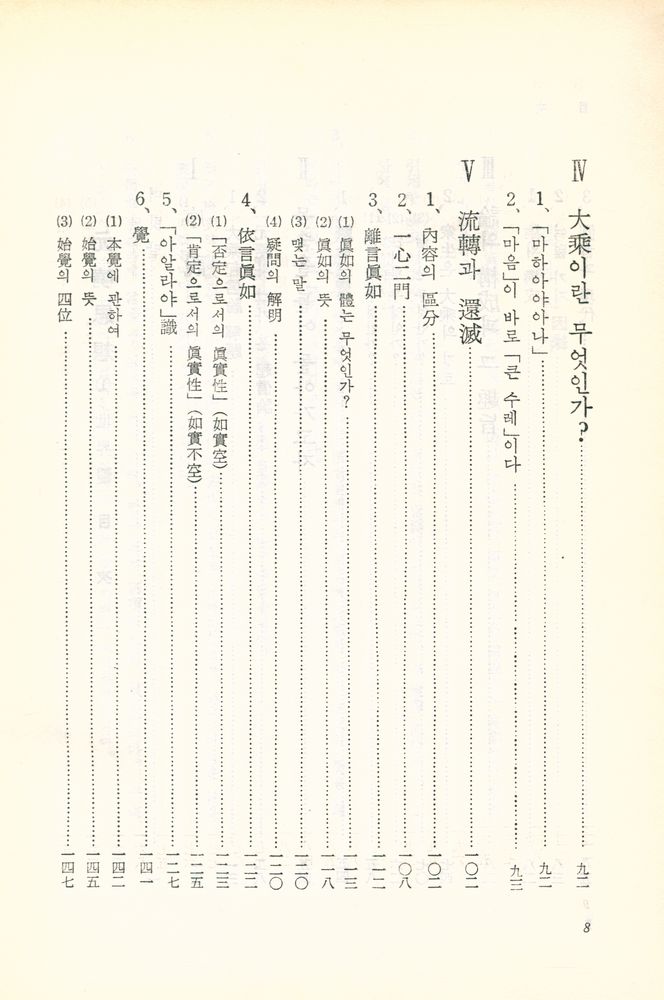 Ⅳ 大乘이란 무엇인가?……九二
1、「마하아야아나」……九二
2、「마음」이 바로 「큰 수레」이다……九三
Ⅴ 流轉과 還滅……一〇二
1、內容의 區分……一〇二
2、一心二門……一〇八
3、離言眞如……一一二
(1) 眞如의 體는 무엇인가?……一一三
(2) 眞如의 뜻……一一八
(3) 맺는 말……一二〇
(4) 疑問의 解明……一二〇
4、依言眞如……一二二
(1) 「否定으로서의 眞實性」(如實空)……一二三
(2) 「肯定으로서의 眞實性」(如實不空)……一二五
5、「아알라야」識……一二七
6、覺……一四一
(1) 本覺에 관하여……一四二
(2) 始覺의 뜻……一四五
(3) 始覺의 四位……一四七
8